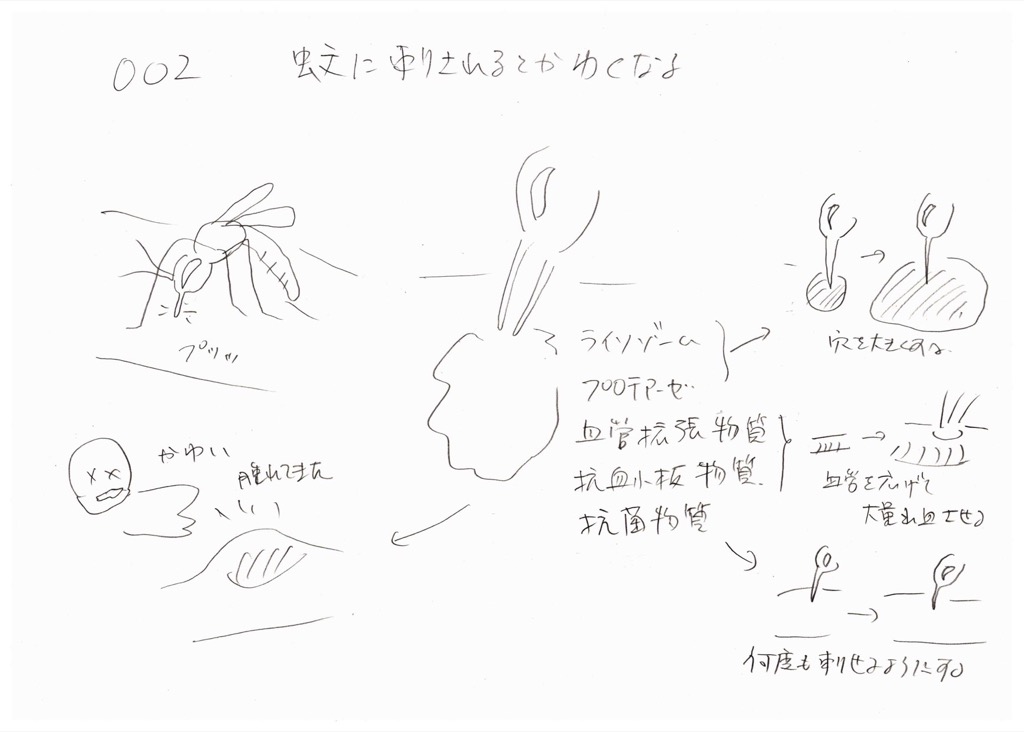 002 蚊に刺されるとかゆくなる
プツッ
ライソゾーム
プロテアーゼ
血管拡張物質
抗血小板物質
抗菌物質
穴を大きくする
血管を広げて
大量出血させる
何度も刺せるようにする
かゆい
腫れてきた